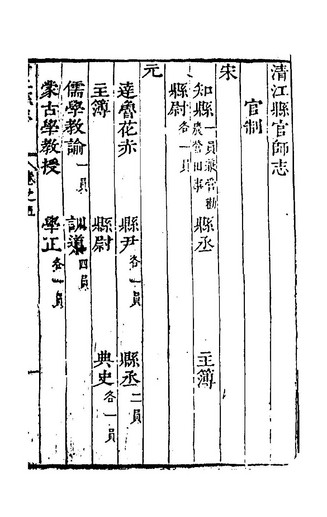 清江縣官師志
官制
宋
知縣一員兼管勸農營田事 縣丞 主簿
縣尉各一員
元
達魯花赤 縣尹各一員 縣丞二員
主簿 縣尉 典史各一員
儒學教諭一員 訓導四員
蒙古學教授 學正各一員
卷之五